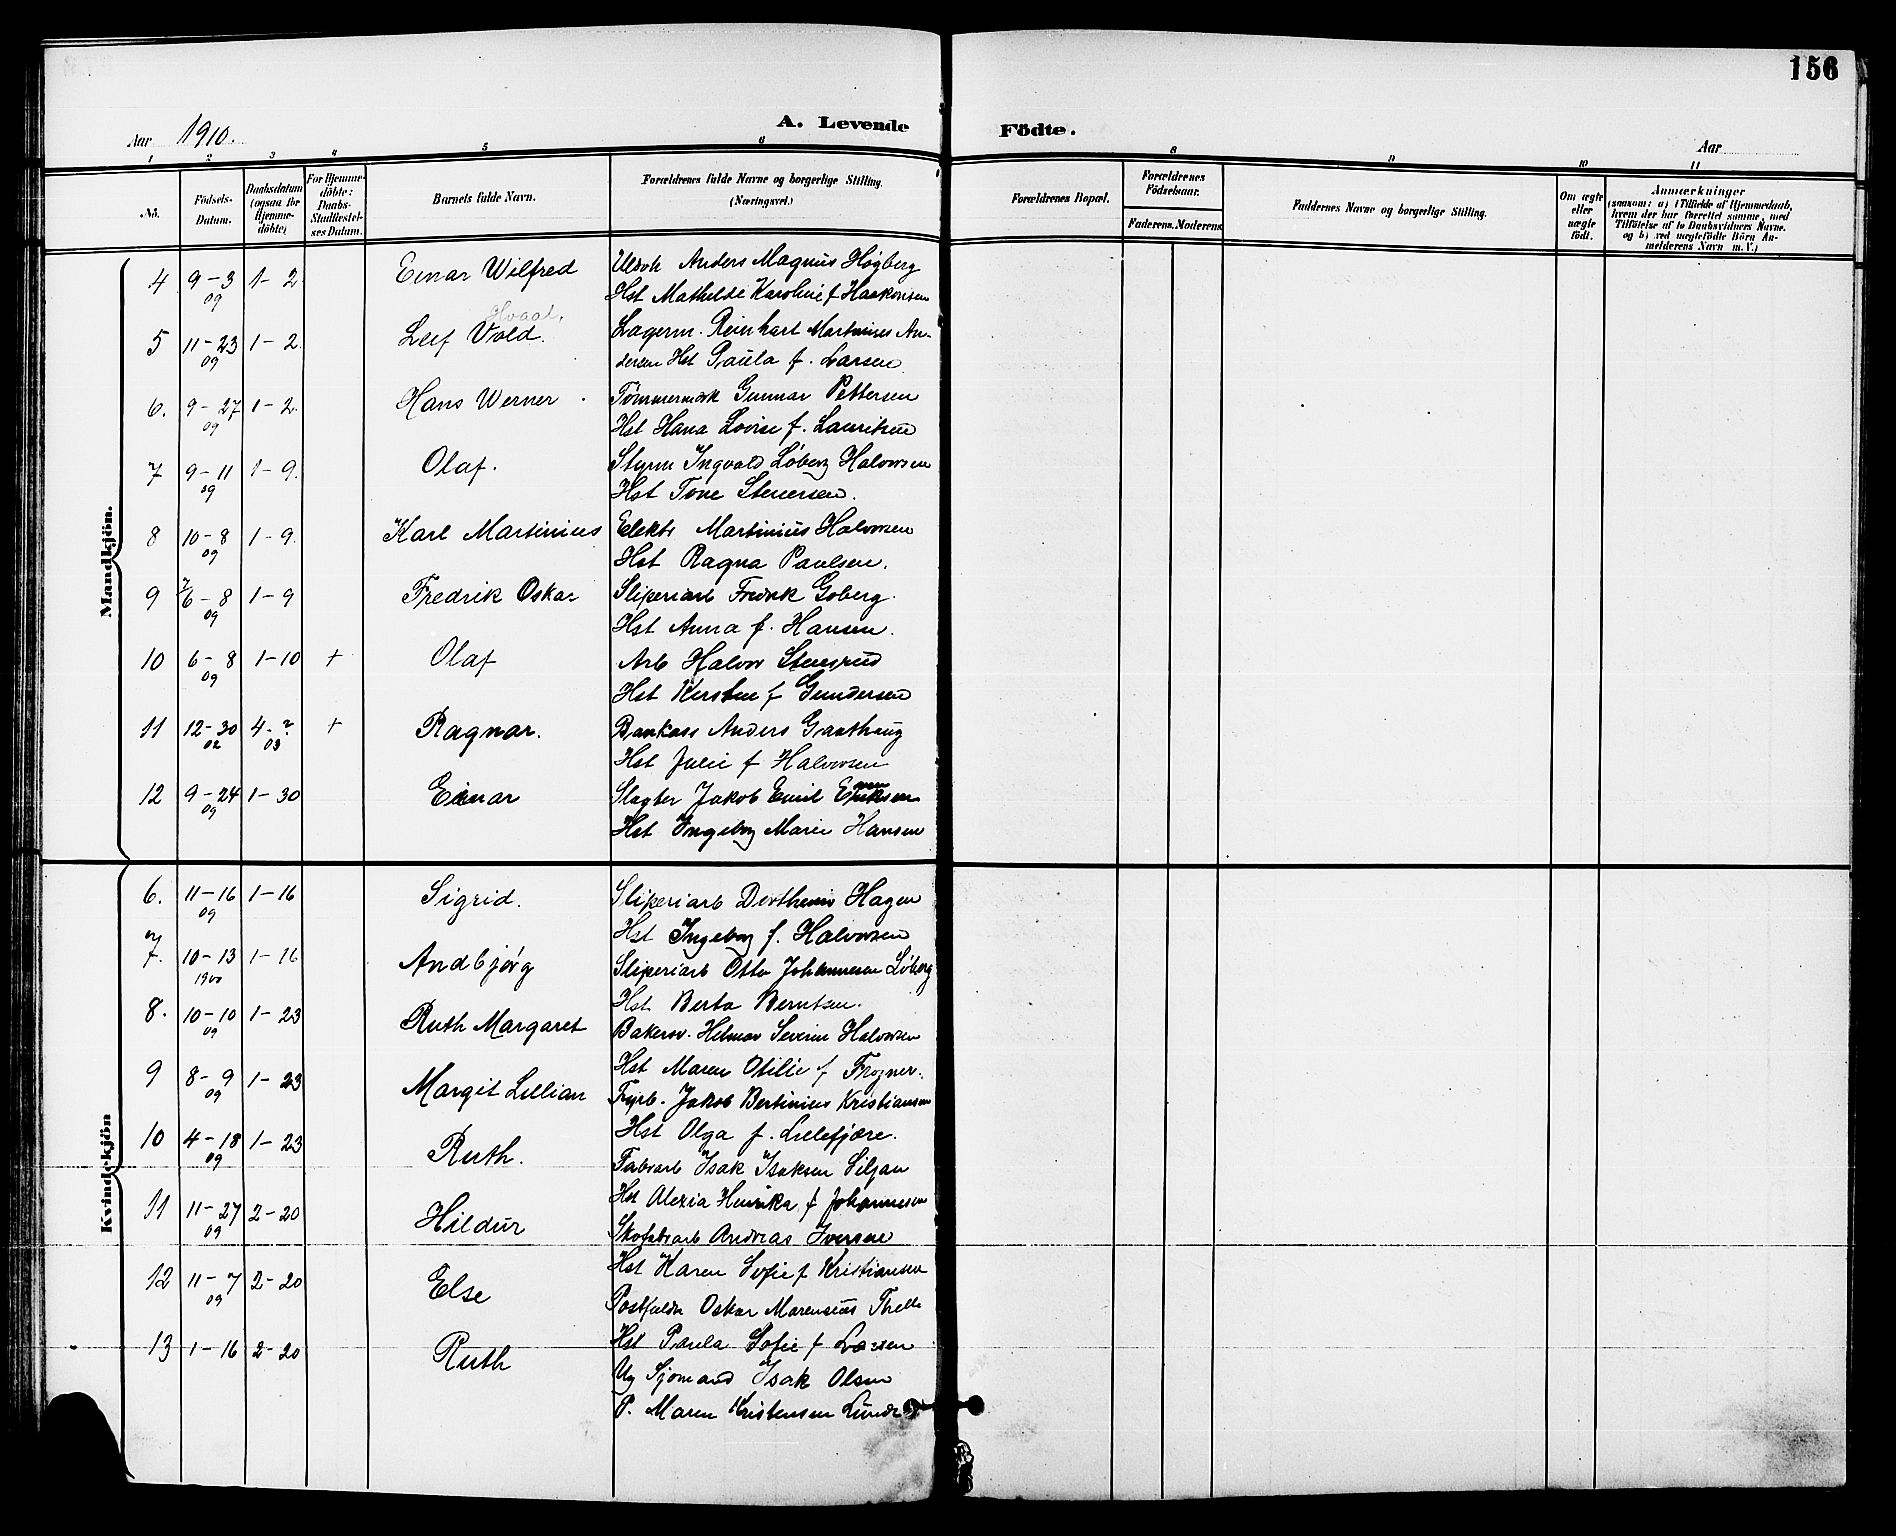 156
Aar 1910. A. Levende Födte. Aar
1 2 3 4 5 6 8 9 10 11
No.
Födsels-
Datum.
Daabsdatum
(ogsaa for
Hjemme-
döbte)
For Hjemme-
döbte:
Daabs-
Stadfæstel-
ses Datum.
Barnets fulde Navn.
Forældrenes fulde Navne og borgerlige Stilling.
(Næringsvei.)
Forældrenes Bopæl.
Forældrenes
Födselsaar.
Faderens. Moderens.
Faddernes Navne og borgerlige Stilling.
Om ægte
eller
uægte
födt.
Anmærkninger
(saasom: a) i Tilfælde af Hjemmedaab,
hvem der har forrettet samme, med
Tilföielse af to Daabsvidners Navne.
og b) ved uægtefödte Börn An-
melderens Navn m. V.)
Mandkjön.
4 9-3 09 1-2 Einar Wilfred Anders Magnus Høgberg
Hst Mathilde Karoline f Haakonsen
Hvaal.
5 11-23 09 1-2. Leif Vold. Lagerm. Reinhart Martinius An-
dersen Hst Paula f. Larsen
6. 9-27 09 1-2. Hans Werner Tømmermæk Gunnar Pettersen
Hst Hana Lovise f. Lauritsen
7 9-11 09 1-9. Olaf. Styrm Ingvald Løberg Halvorsen
Hst Tone Stenersen.
8 10-8 09 1-9. Karl Martinius Elektr Martinius Halvorsen
Hst Ragna Paulsen.
9 6-8 09 1-9 Fredrik Oskar Sliperiarb Fredrik Goberg.
Hst Anna f. Hansen.
10 6-8 09 1-10 + Olaf Arb Halvor Stensrud
Hst Kirstine f Gundersen
11 12-30 02 4-? 03 + Ragnar. Bankass Anders Graathaug
Hst Julie f Halvorsen
12 9-24 09 1-30 Einar Slagter Jakob Emil
Hst Ingeborg Marie Hansen
Kvindekjön
6. 11-16 09 1-16 Sigrid. Sliperiarb Hagen
Hst Ingeborg f. Halvorsen
7. 10-13 1900 1-16 Andbjørg Sliperiarb Otto Johannesen Løberg
Hst Berta Berntsen.
8. 10-10 09 1-23 Ruth Margaret Bakersv. Helmar Severin Halvorsen
Hst Maren Otilie f Frogner.
9 8-9 09 1-23 Margit Lillian Fyrb. Jakob Bertinius Kristiansen
Hst Olga f. Lillefjære.
10 4-18 09 1-23 Ruth. Fabrarb Isak Isaksen Siljan
Hst Alexia Henrika f Johannesen
11 11-27 09 2-20 Hildur Skofabrarb Andreas Iversen
Hst Karen Sofie f Kristiansen
12 11-7 09 2-20 Else Postfuldm Oskar Marensius Thelle
Hst Paula Sofie f Larsen
13 1-16 2-20 Ruth Ug Sjømand Isak Olsen
P. Maren Kristensen